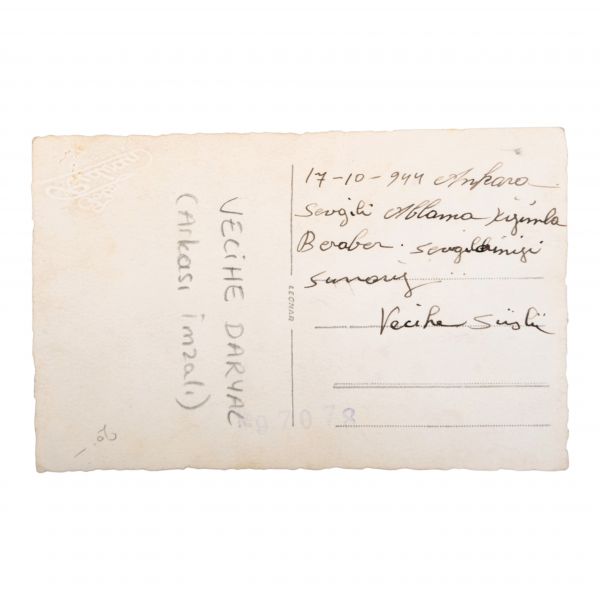 17-10-944 Ankara
Sevgili Ablama Kızımla
Beraber. sevgilerimizi
sunarız
Vecihe Süslü
LEONAR
VECİHE DARYAL
(Arkası imzalı)
97078